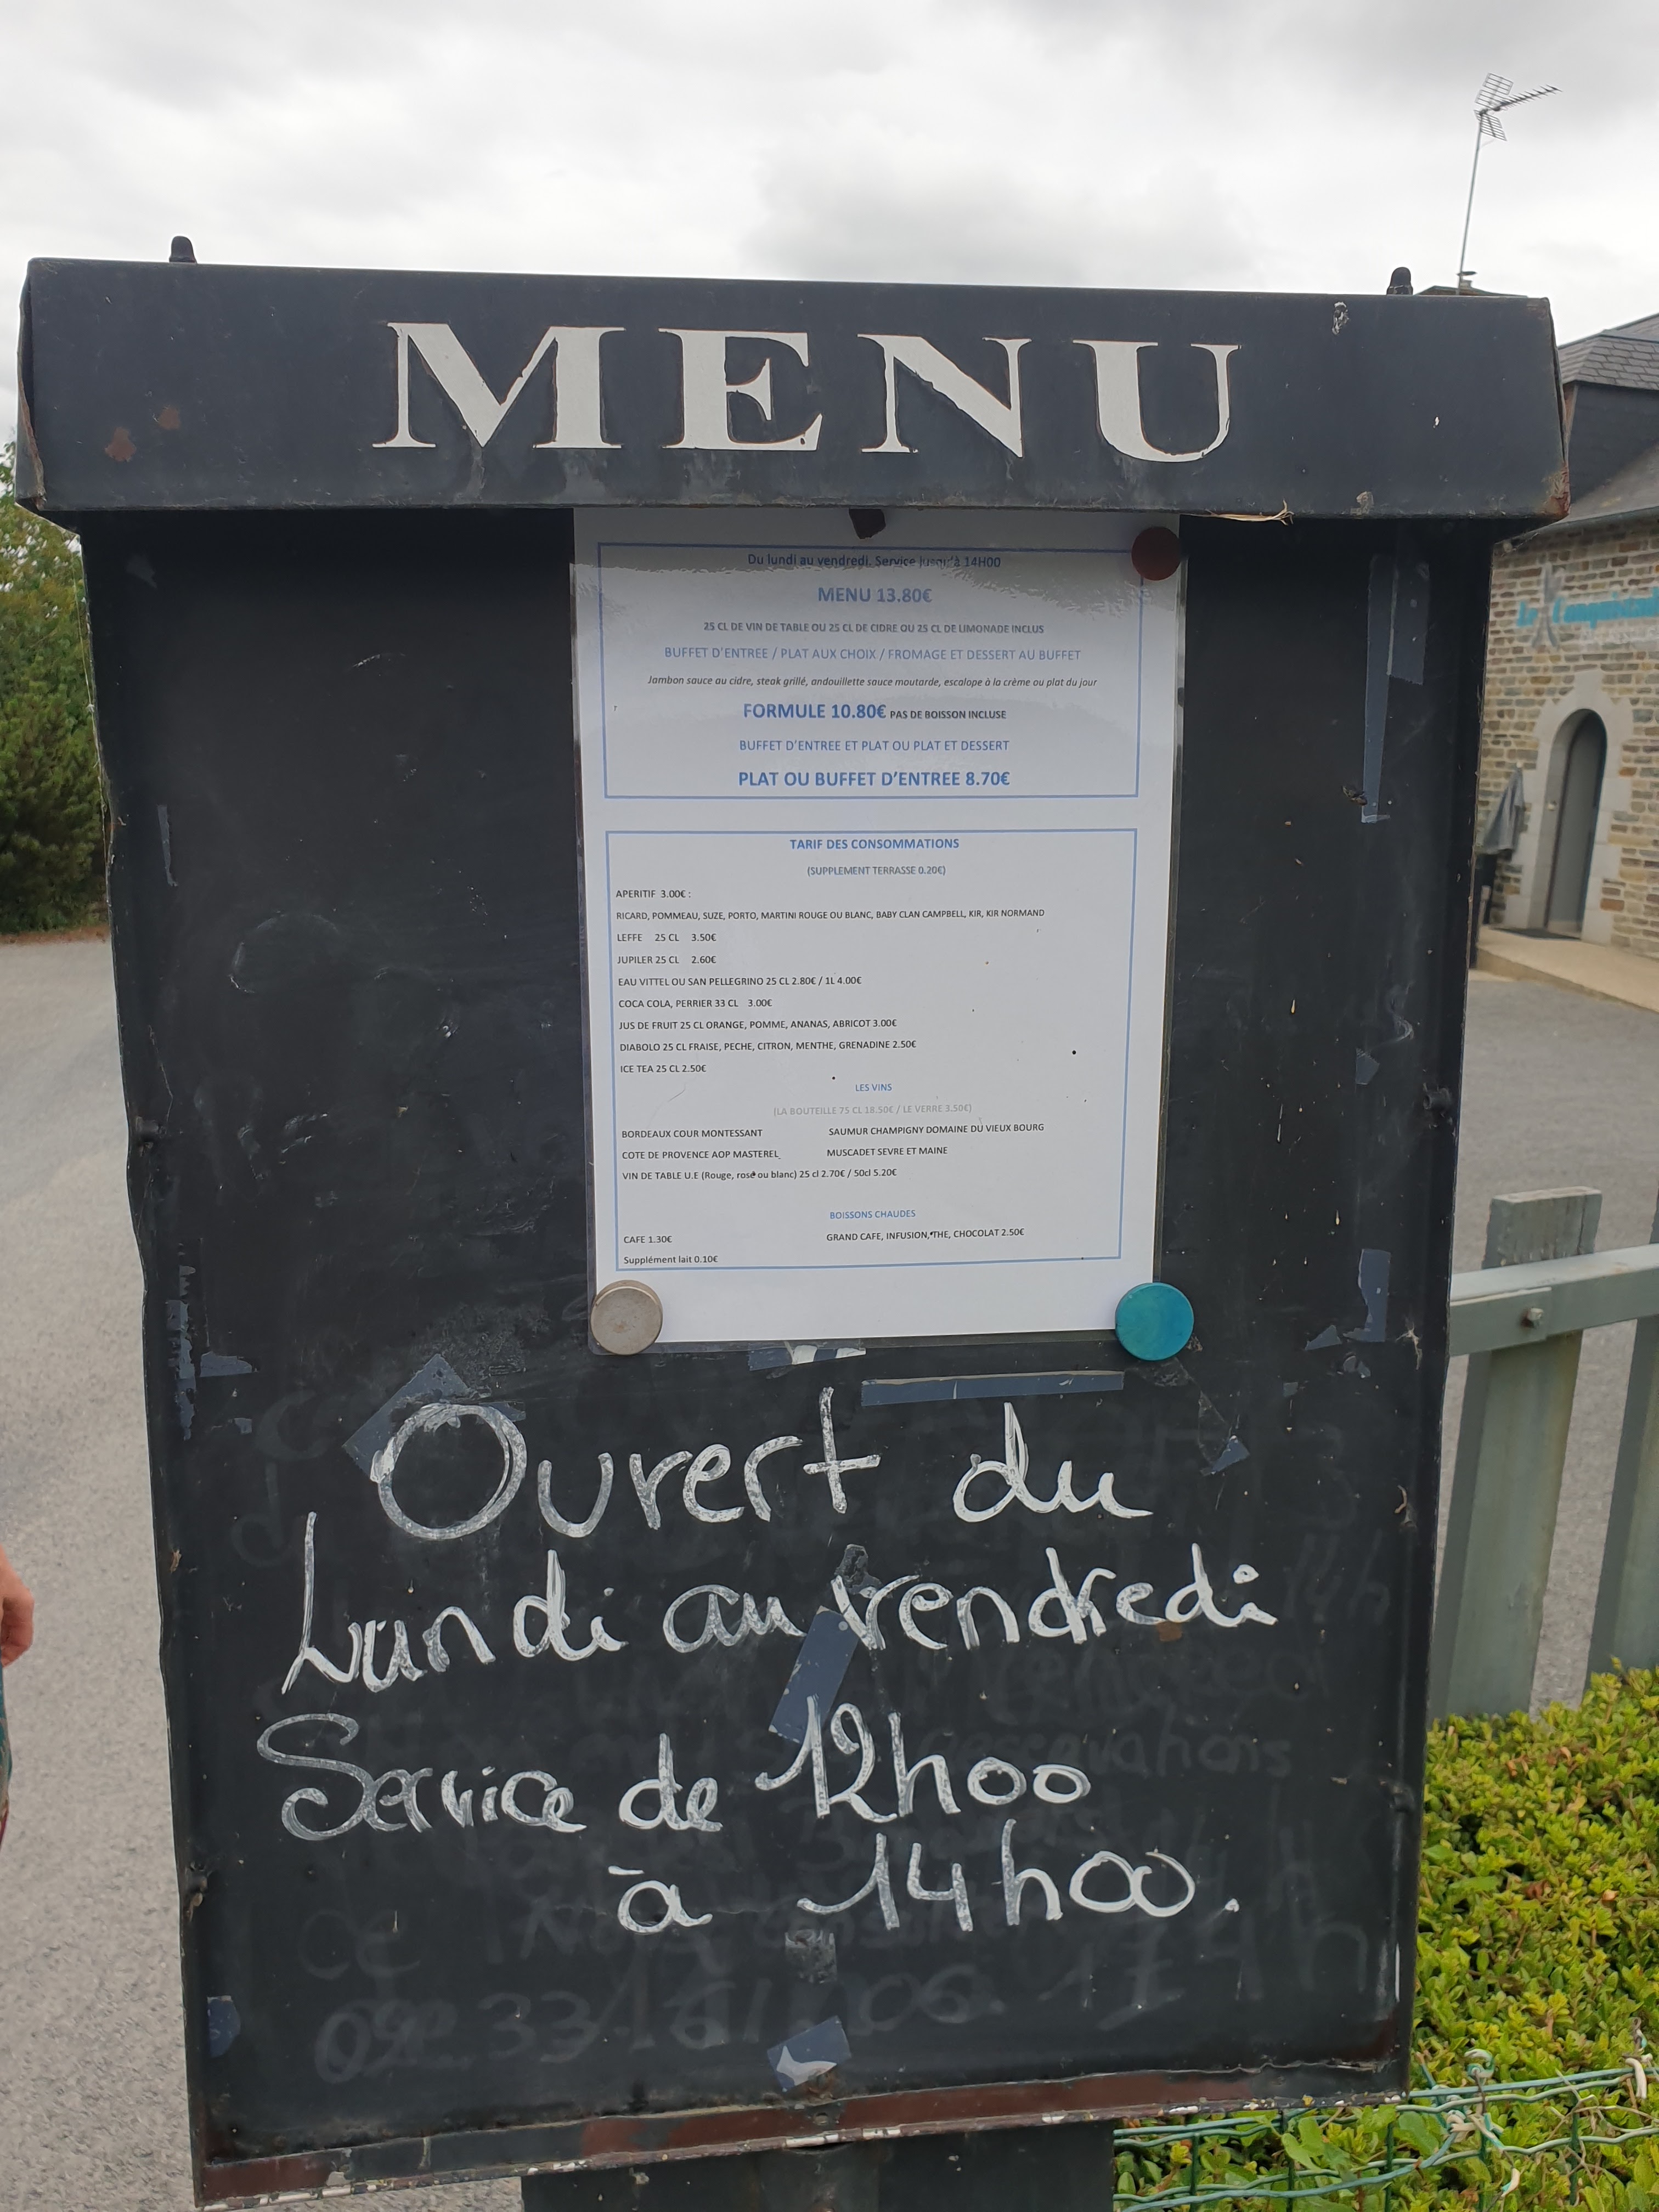 MENU
Du lundi au vendredi. Service jusqu'à 14H00
MENU 13.80€
25 CL DE VIN DE TABLE OU 25 CL DE CIDRE OU 25 CL DE LIMONADE INCLUS
BUFFET D'ENTREE / PLAT AUX CHOIX / FROMAGE ET DESSERT AU BUFFET
Jambon sauce au cidre, steak grillé, andouillette sauce moutarde, escalope à la crème ou plat du jour
FORMULE 10.80€ PAS DE BOISSON INCLUSE
BUFFET D'ENTREE ET PLAT OU PLAT ET DESSERT
PLAT OU BUFFET D'ENTREE 8.70€
TARIF DES CONSOMMATIONS
(SUPPLEMENT TERRASSE 0.20€)
APERITIF 3.00€ :
RICARD, POMMEAU, SUZE, PORTO, MARTINI ROUGE OU BLANC, BABY CLAN CAMPBELL, KIR, KIR NORMAND
LEFFE 25 CL 3.50€
JUPILER 25 CL 2.60€
EAU VITTEL OU SAN PELLEGRINO 25 CL 2.80€ / 1L 4.00€
COCA COLA, PERRIER 33 CL 3.00€
JUS DE FRUIT 25 CL ORANGE, POMME, ANANAS, ABRICOT 3.00€
DIABOLO 25 CL FRAISE, PECHE, CITRON, MENTHE, GRENADINE 2.50€
ICE TEA 25 CL 2.50€
LES VINS
(LA BOUTEILLE 75 CL 18.50€ / LE VERRE 3.50€)
BORDEAUX COUR MONTESSANT SAUMUR CHAMPIGNY DOMAINE DU VIEUX BOURG
COTE DE PROVENCE AOP MASTEREL MUSCADET SEVRE ET MAINE
VIN DE TABLE U.E (Rouge, rosé ou blanc) 25 cl 2.70€ / 50cl 5.20€
BOISSONS CHAUDES
CAFE 1.30€ GRAND CAFE, INFUSION, THE, CHOCOLAT 2.50€
Supplément lait 0.10€
Ouvert du
Lundi au vendredi
Service de 12h00
à 14h00.
Le